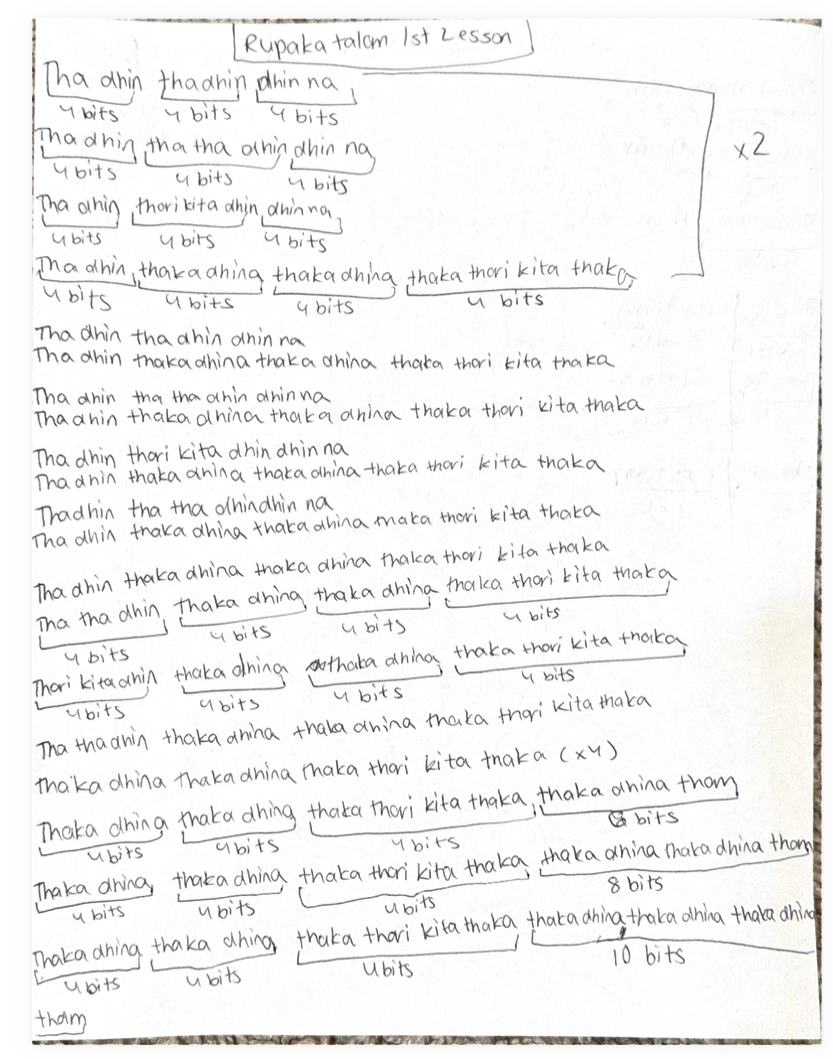 Rupaka talam 1st Lesson
Tha dhin thadhin dhin na
4 bits 4 bits 4 bits
Tha dhin tha tha dhin dhin na
x2
4 bits 4 bits 4 bits
Tha dhin thori kita dhin dhin na
4 bits 4 bits 4 bits
Tha dhin thaka dhina thaka dhina thaka thori kita thaka
4 bits 4 bits 4 bits 4 bits
Tha dhin tha dhin dhin na
Tha dhin thaka dhina thaka dhina thaka thori kita thaka
Tha dhin tha tha dhin dhin na
Tha dhin thaka dhina thaka dhina thaka thori kita thaka
Tha dhin thori kita dhin dhin na
Tha dhin thaka dhina thaka dhina thaka thori kita thaka
Thadhin tha tha dhindhin na
Tha dhin thaka dhina thaka dhina thaka thori kita thaka
Tha dhin thaka dhina thaka dhina thaka thori kita thaka
Tha tha dhin thaka dhina thaka dhina thaka thori kita thaka
4 bits 4 bits 4 bits 4 bits
Thori kita dhin thaka dhina thaka dhina thaka thori kita thaka
4 bits 4 bits 4 bits 4 bits
Tha tha dhin thaka dhina thaka dhina thaka thori kita thaka
thaka dhina thaka dhina thaka thori kita thaka (x4)
Thaka dhina thaka dhina thaka thori kita thaka thaka dhina thom
4 bits 4 bits 4 bits bits
Thaka dhina thaka dhina thaka thori kita thaka thaka dhina thaka dhina thom
4 bits 4 bits 4 bits 8 bits
Thaka dhina thaka dhina thaka thori kita thaka thaka dhina thaka dhina thaka dhina
4 bits 4 bits 4 bits 10 bits
thom